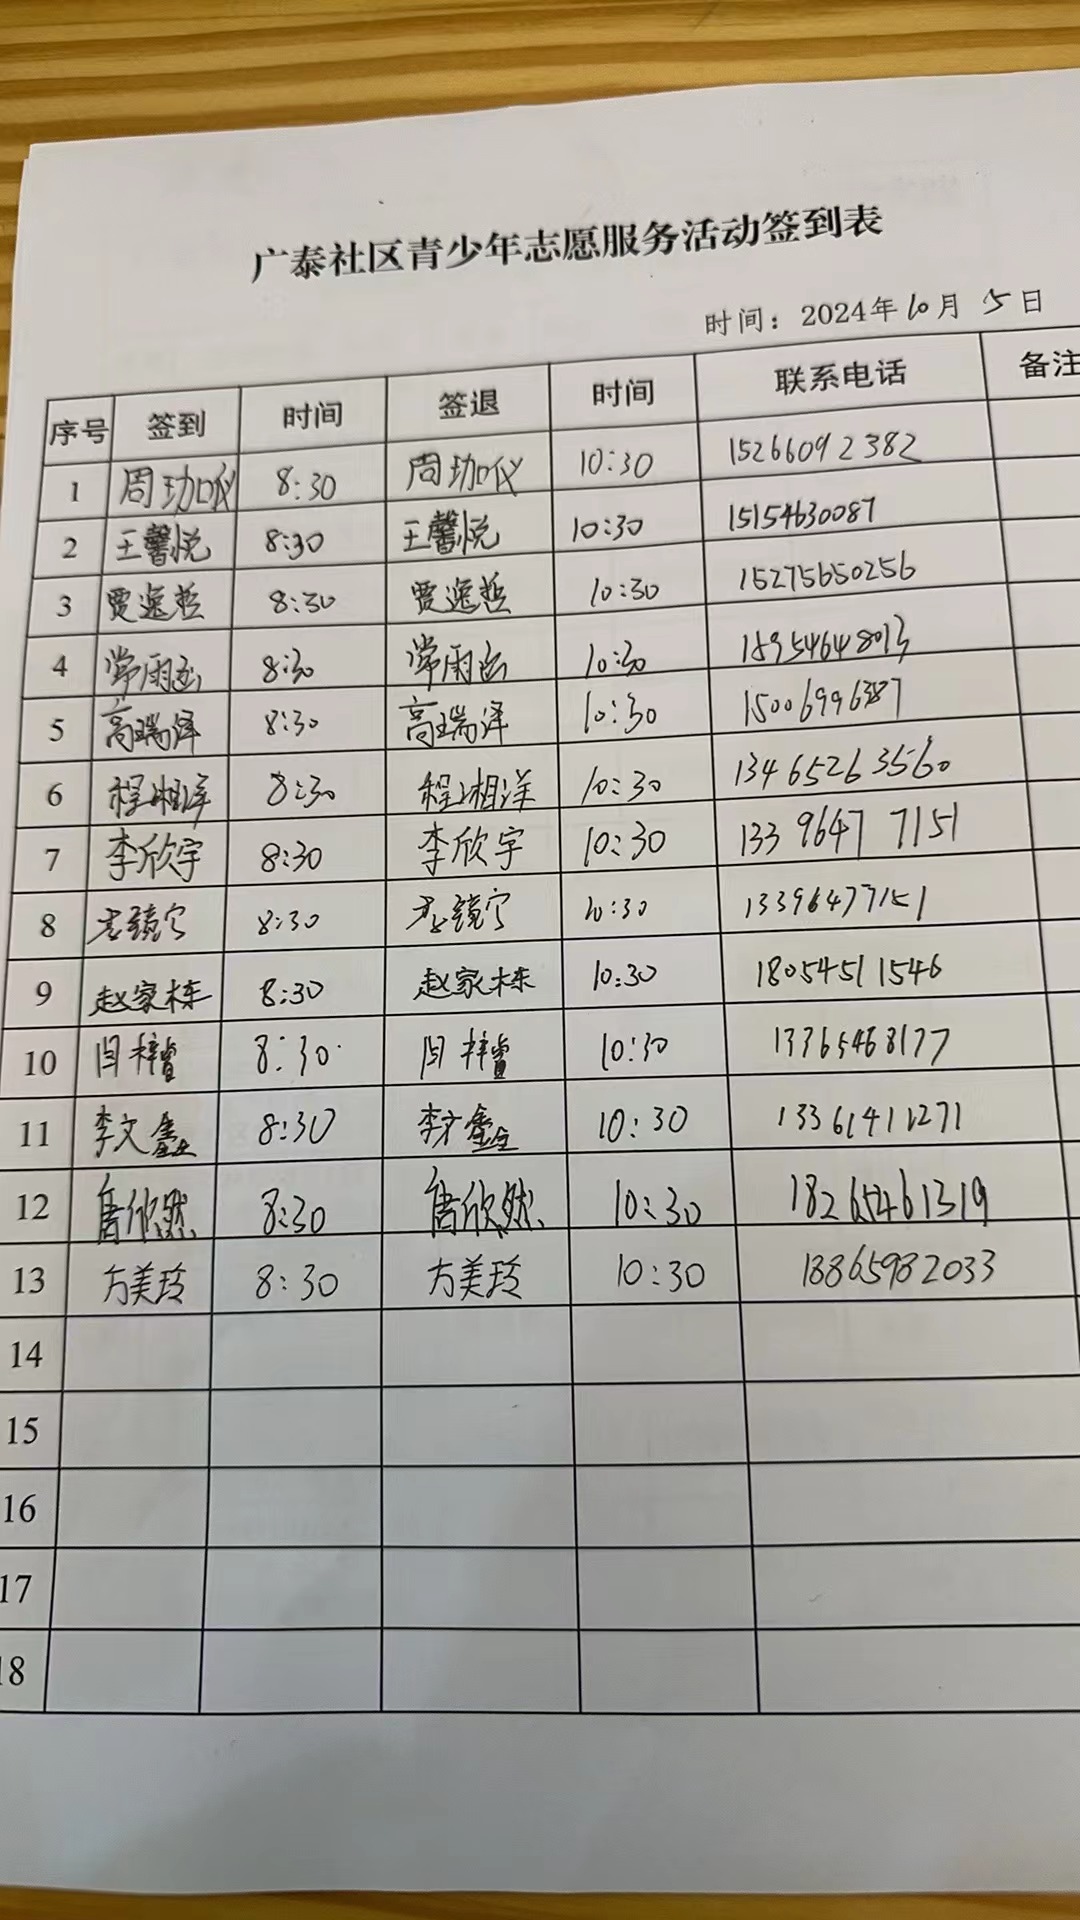 广泰社区青少年志愿服务活动签到表
时间：2024年10月5日
序号 签到 时间 签退 时间 联系电话 备注
1 周珈仪 8:30 周珈仪 10:30 15266092382
2 王馨悦 8:30 王馨悦 10:30 15154630087
3 贾逸哲 8:30 贾逸哲 10:30 15275650256
4 常雨 8:30 常雨 10:30 15954648013
5 高瑞泽 8:30 高瑞泽 10:30 15006996387
6 程湘洋 8:30 程湘洋 10:30 13465263560
7 李欣宇 8:30 李欣宇 10:30 13396477151
8 李镜宁 8:30 李镜宁 10:30 13396477151
9 赵家栋 8:30 赵家栋 10:30 18054511546
10 闫梓 8:30 闫梓 10:30 13365468177
11 李文鑫 8:30 李文鑫 10:30 13361411271
12 唐欣然 8:30 唐欣然 10:30 18265461319
13 方美玲 8:30 方美玲 10:30 18865982033
14
15
16
17
18